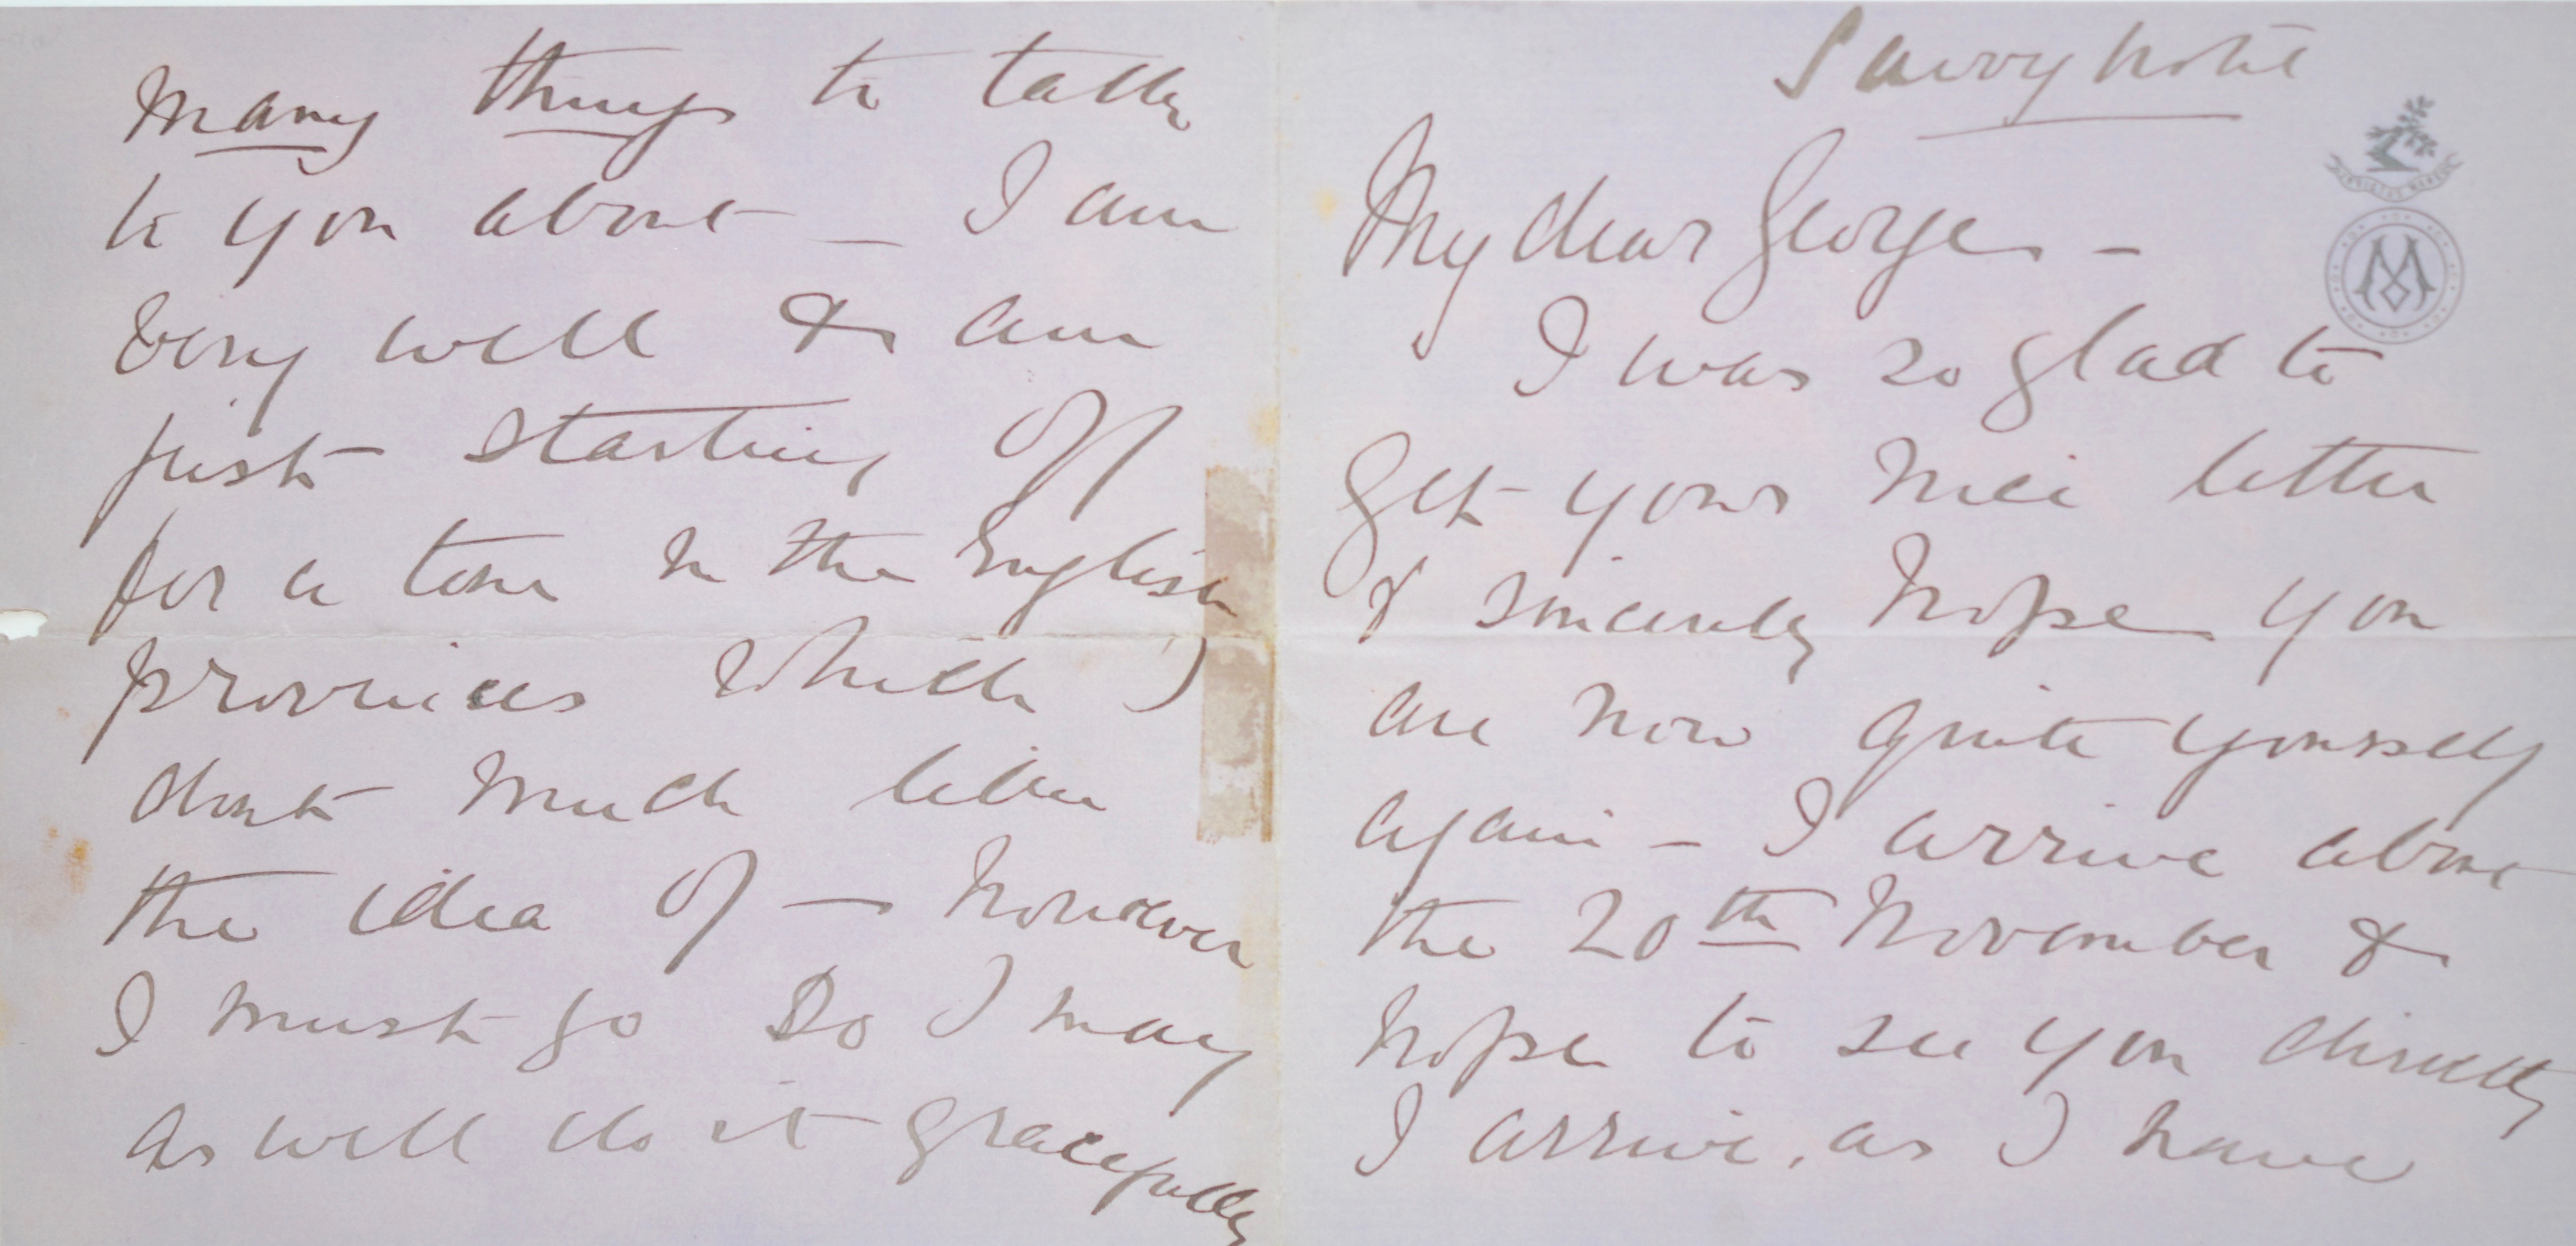 Savoy hotel
My dear George –
I was so glad to
get your nice letter
& sincerely hope you
are now quite yourself
again – I arrive about
the 20th November &
hope to see you directly
I arrive, as I have
many things to talk
to you about – I am
very well & am
just starting off
for a tour in the English
provinces which I
dont much like
the idea of – however
I must go So I may
as well do it gracefully